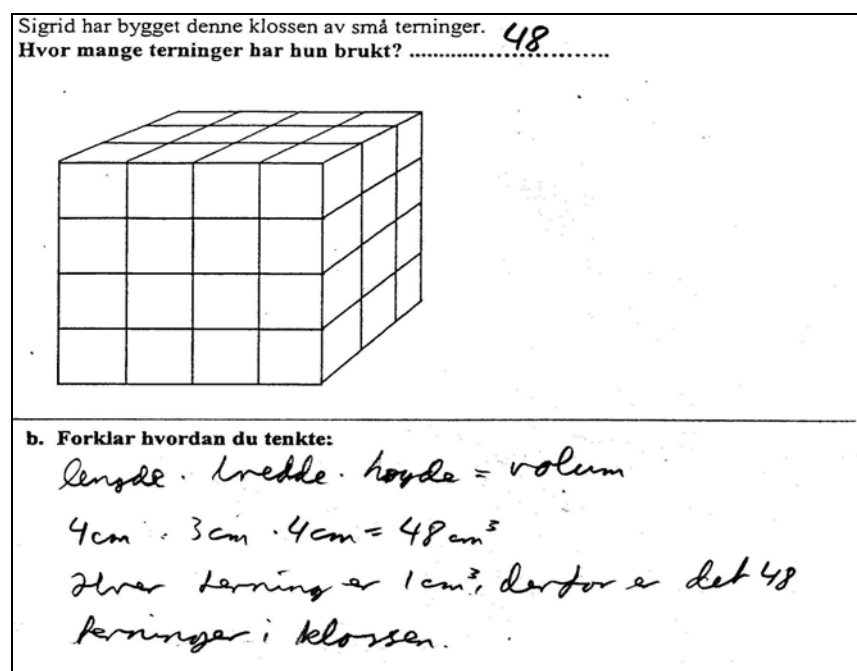 Sigrid har bygget denne klossen av små terninger.
Hvor mange terninger har hun brukt? ................................ 48
b. Forklar hvordan du tenkte:
lengde · bredde · høyde = volum
4 cm · 3 cm · 4 cm = 48 cm³
Hver terning er 1 cm³, derfor er det 48
terninger i klossen.